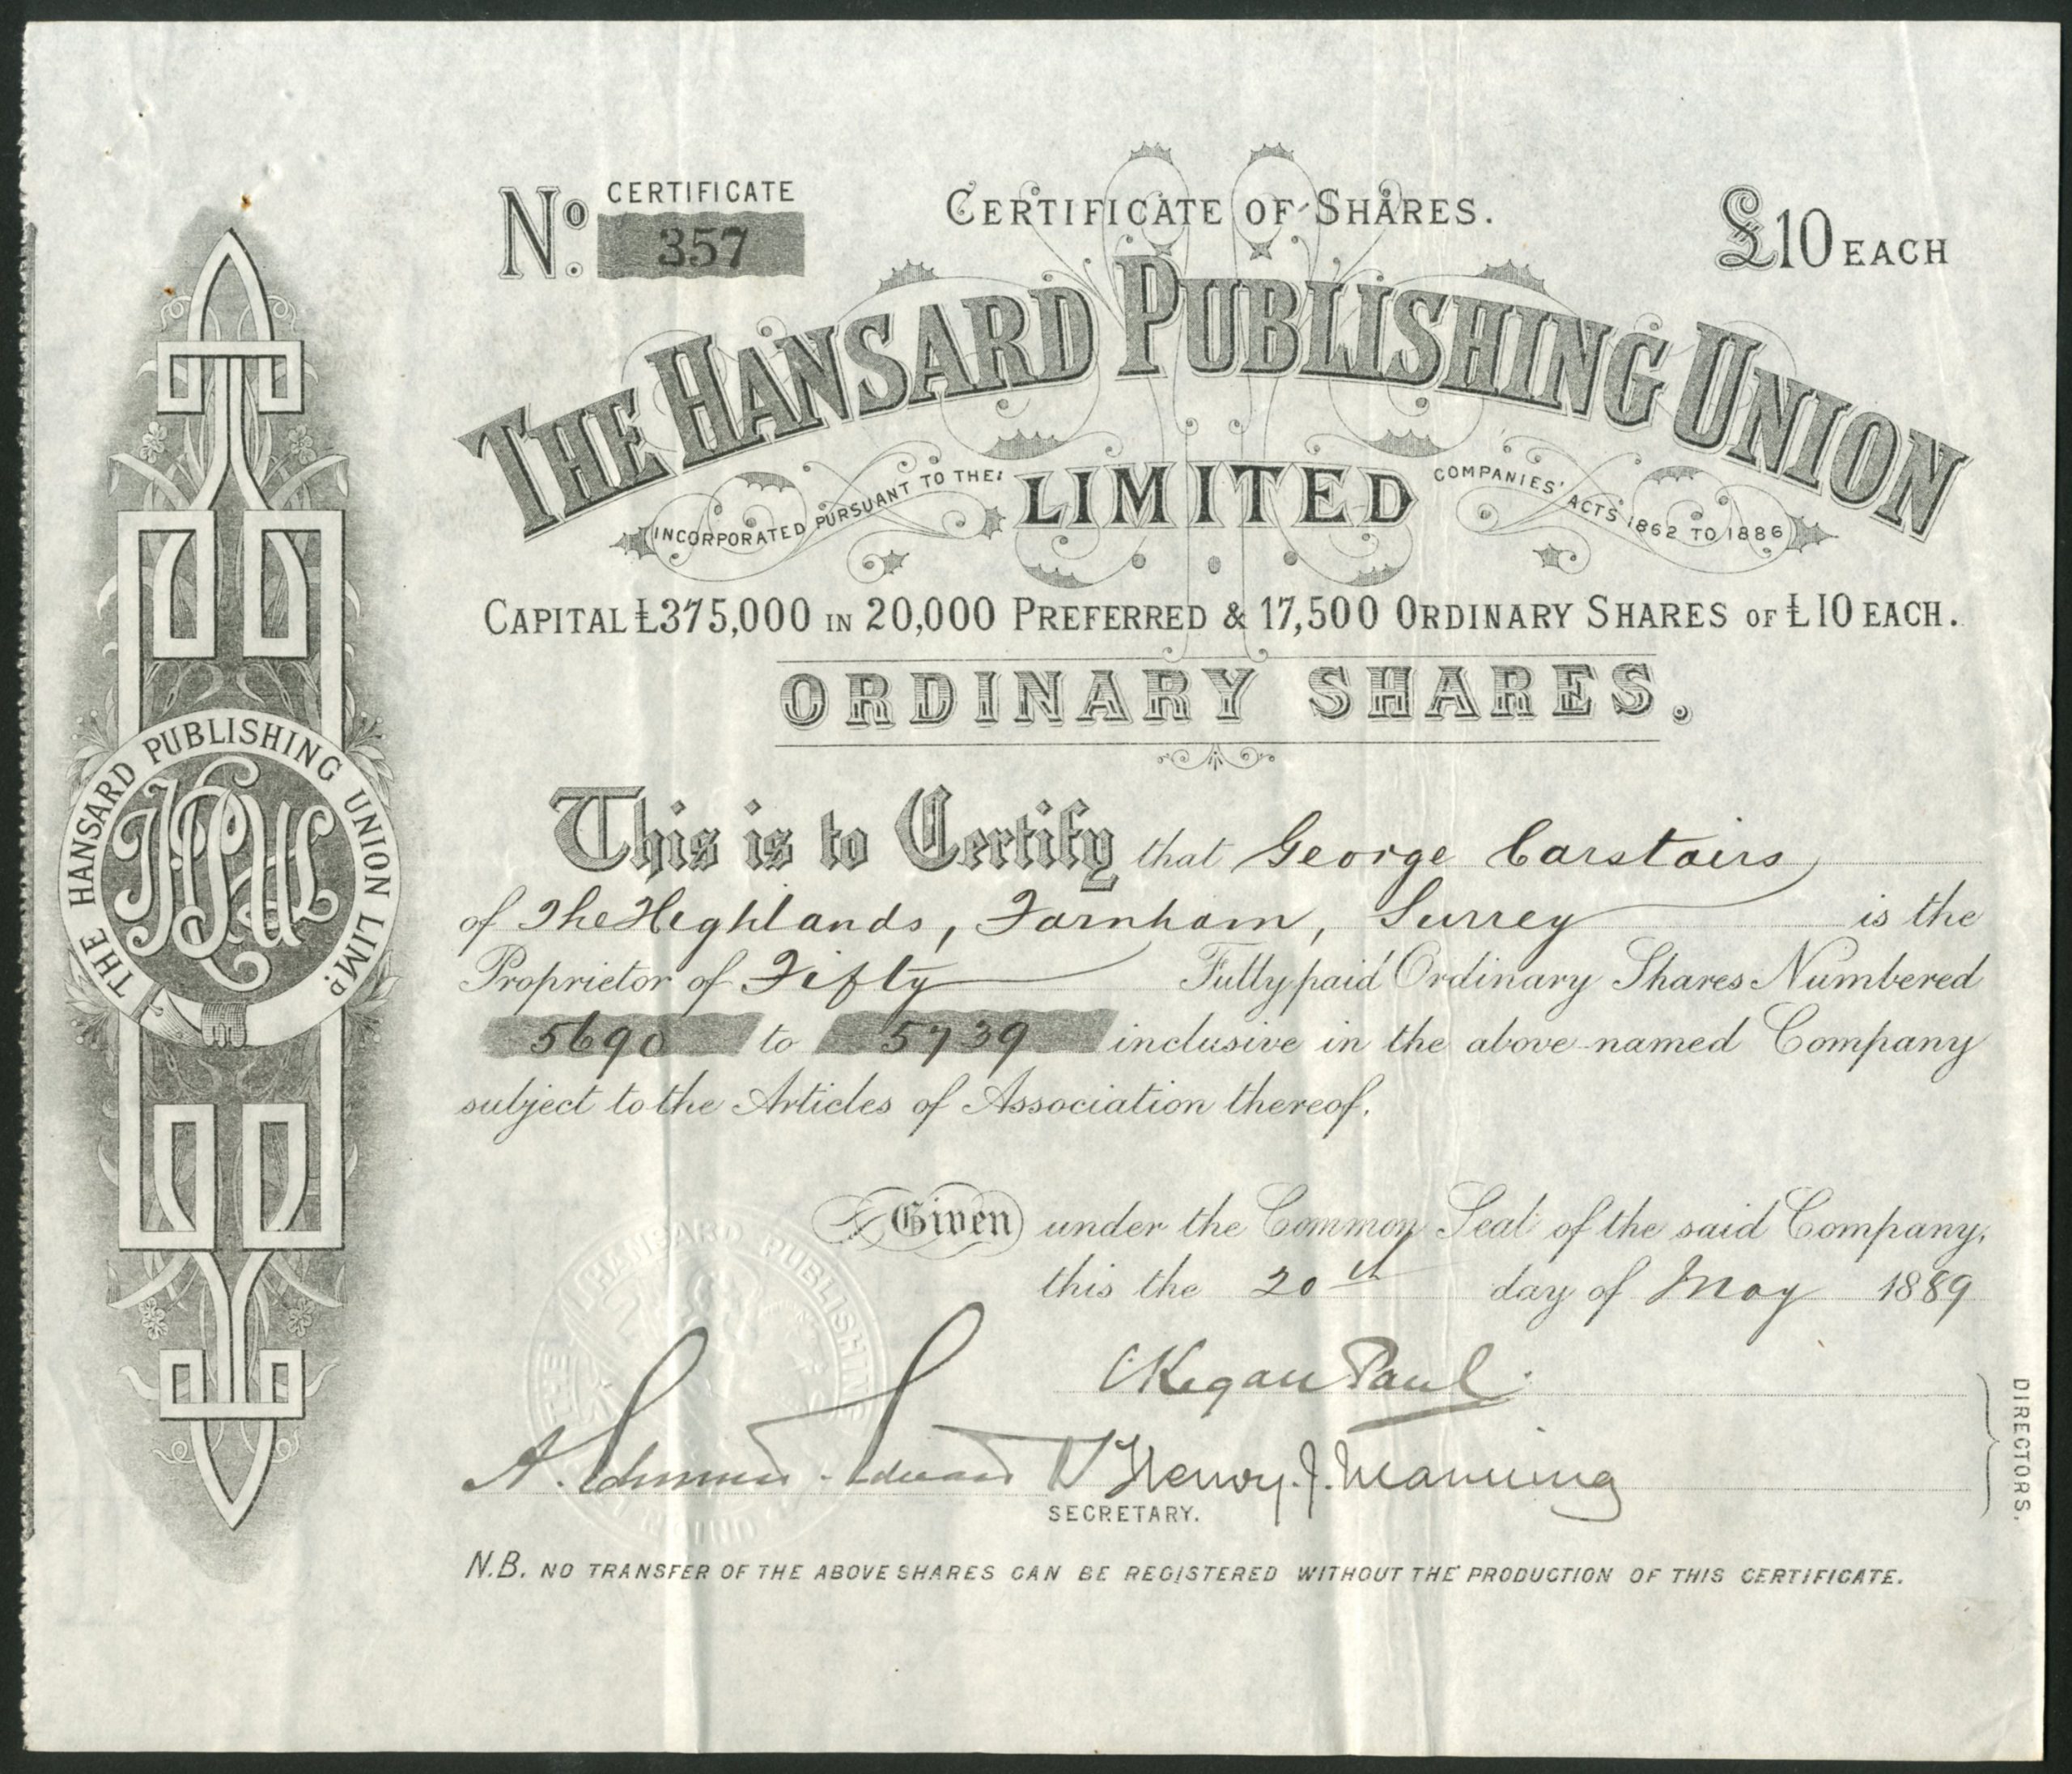 No. CERTIFICATE 357
CERTIFICATE OF SHARES.
£10 EACH
THE HANSARD PUBLISHING UNION
INCORPORATED PURSUANT TO THE LIMITED COMPANIES' ACTS 1862 TO 1886
CAPITAL £375,000 IN 20,000 PREFERRED & 17,500 ORDINARY SHARES OF £10 EACH.
ORDINARY SHARES.
THE HANSARD PUBLISHING UNION LIMD.
This is to Certify that George Carstairs
of The Highlands, Farnham, Surrey is the
Proprietor of Fifty Fully paid Ordinary Shares Numbered
5690 to 5739 inclusive in the above named Company
subject to the Articles of Association thereof.
Given under the Common Seal of the said Company,
this the 20th day of May 1889
THE HANSARD PUBLISHING UNION
C Kegan Paul
Henry. J. Manning
DIRECTORS.
SECRETARY.
N.B. NO TRANSFER OF THE ABOVE SHARES CAN BE REGISTERED WITHOUT THE PRODUCTION OF THIS CERTIFICATE.